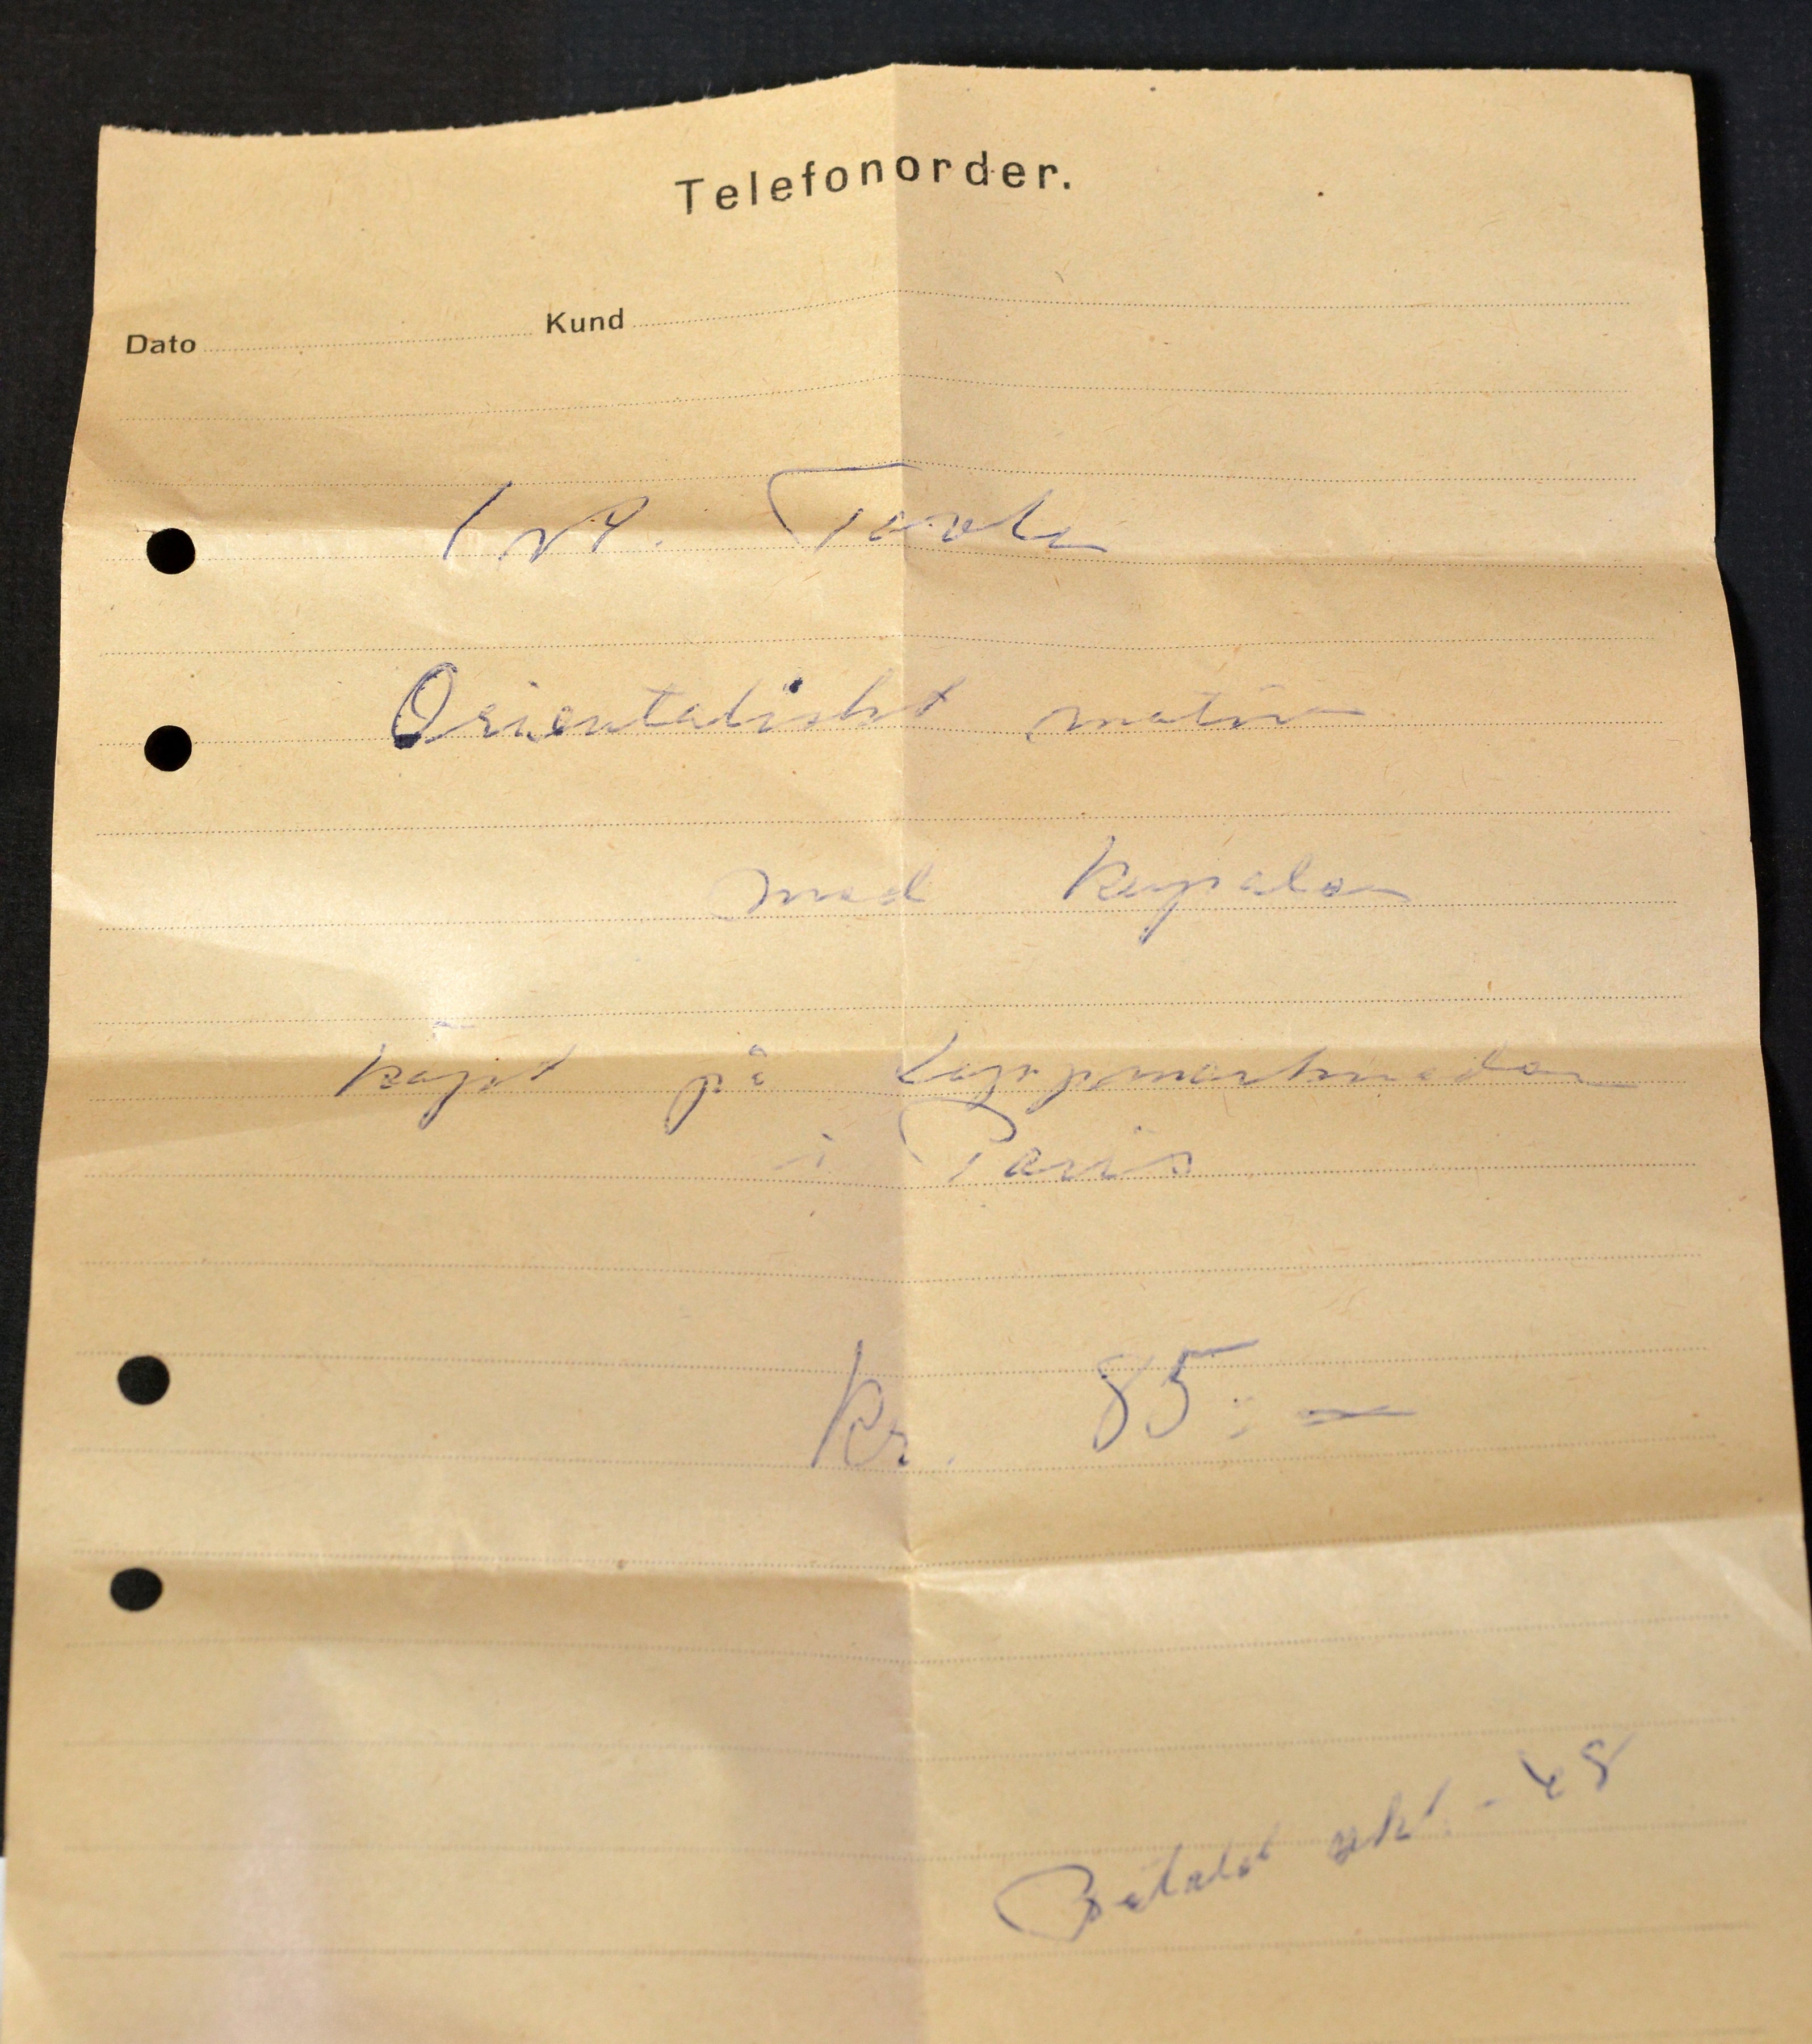 Telefonorder.
Dato Kund
1 st. Tavla
Orientaliskt motiv
med kupoler
köpt på Loppmarknaden
i Paris
Kr. 85:-
Betalat okt. - 48